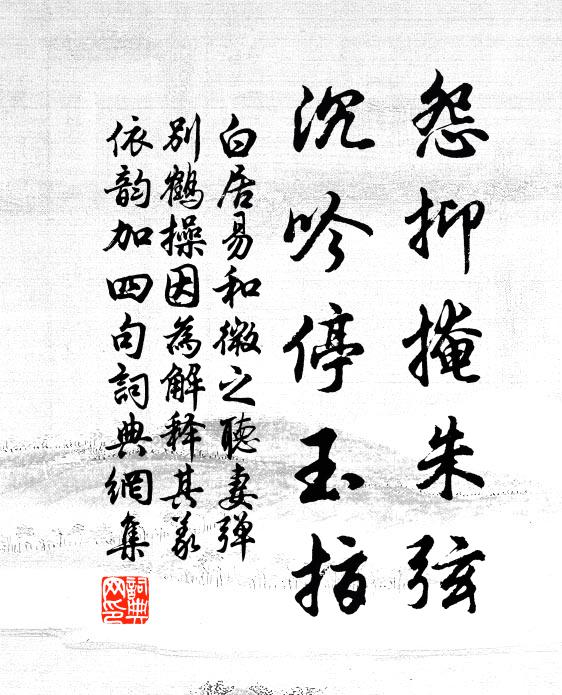 怨抑掩朱弦
沉吟停玉指
白居易和微之聽妻弹
别鶴操因為解释其义
依韵加四句詞典網集
詞典
网印